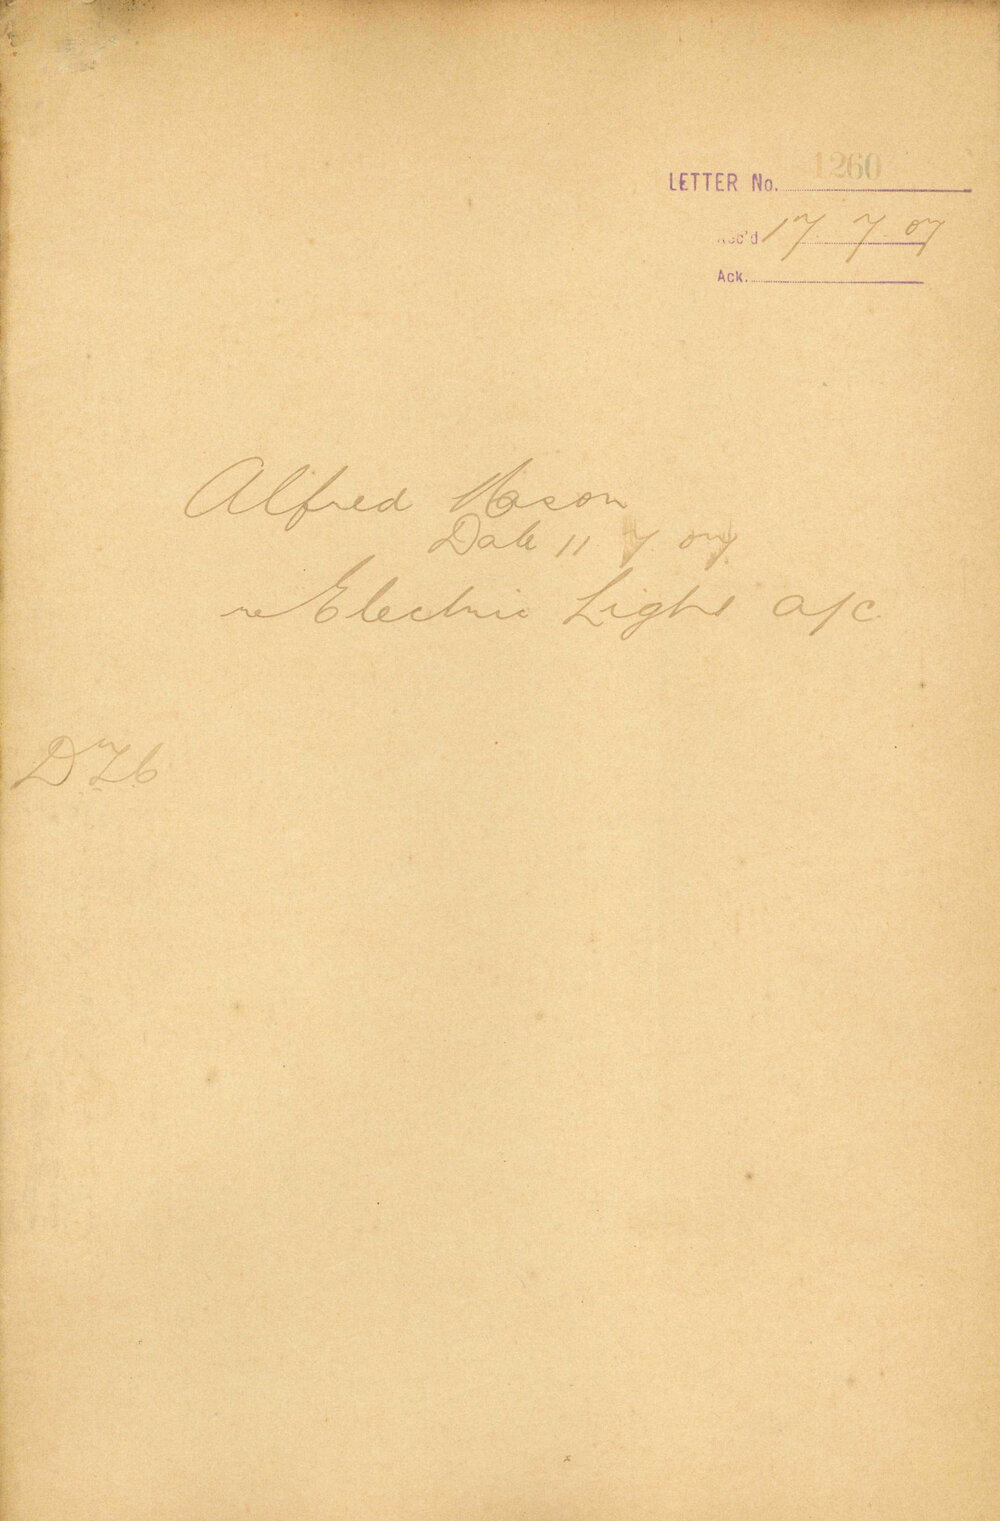 LETTER No. 1260
Rec'd 17 7 07
Ack.
Alfred Mason
Date 11 7 07
re Electric Light a/c